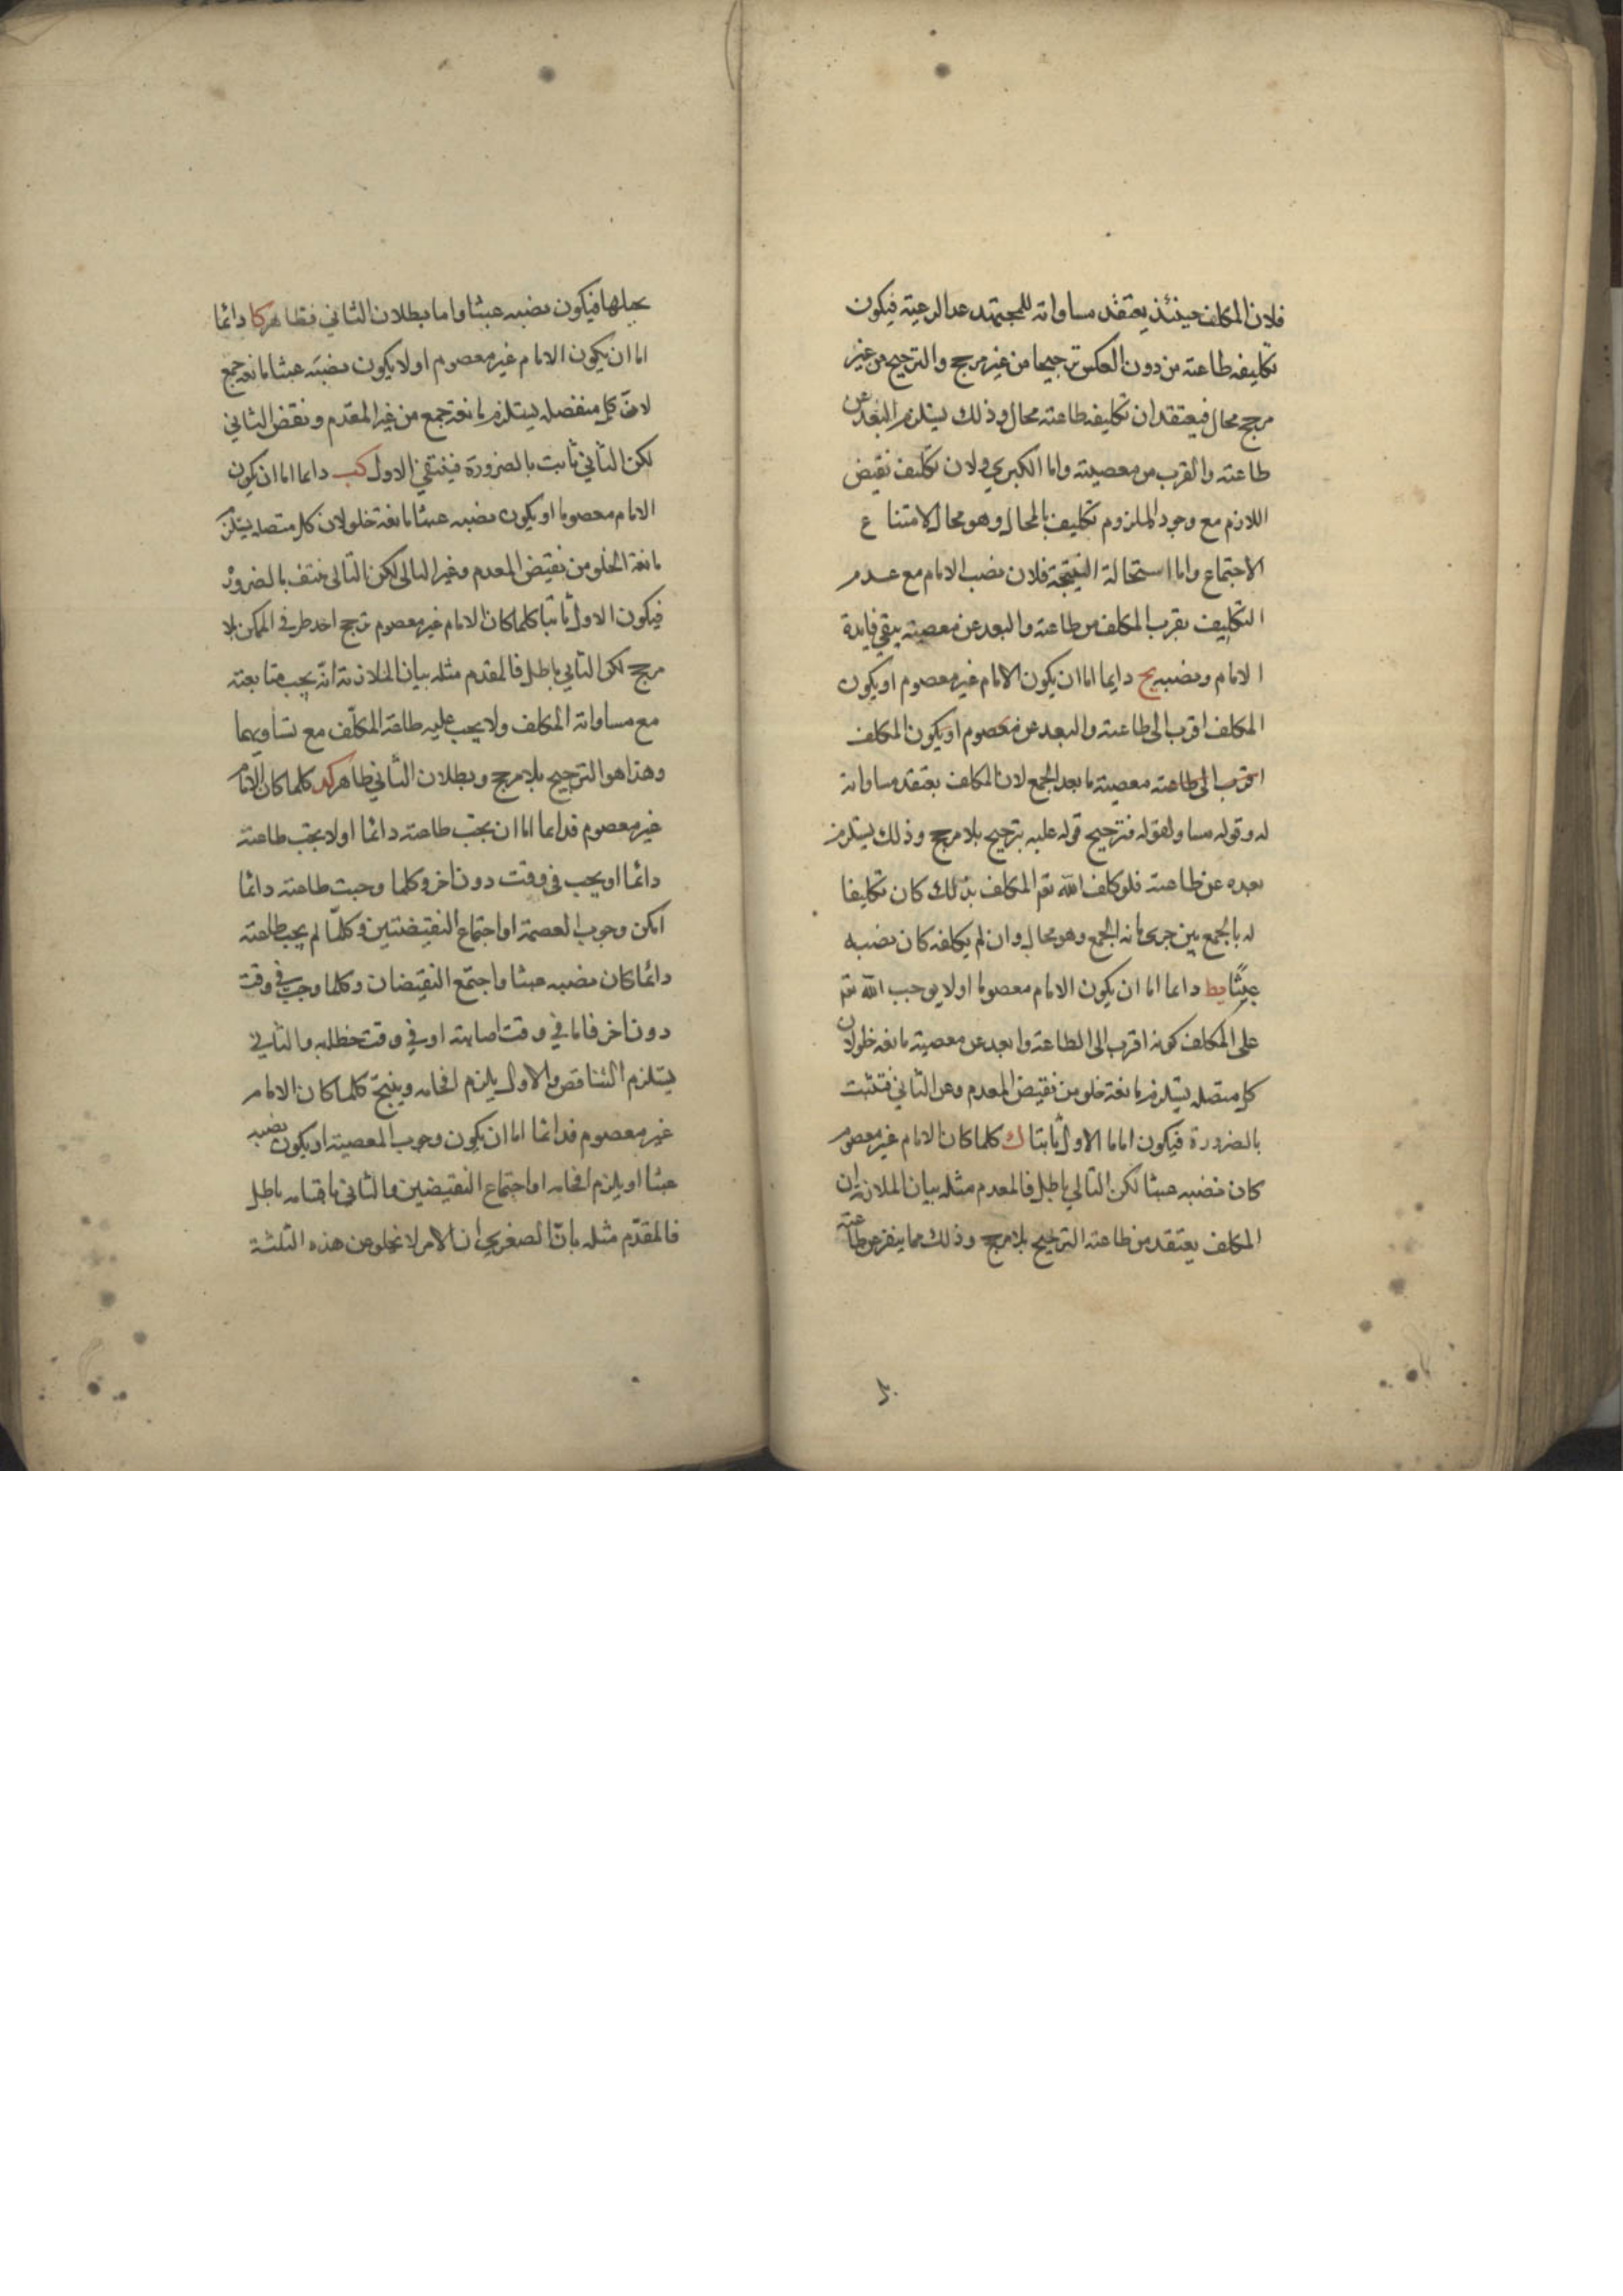 فلان المكلف حينئذ يعتقد مساواته للمجتهد عدا الرعية فيكون
تكليفه طاعته من دون العكس ترجيحا من غير مرجح والترجيح من غير
مرجح محال فيعتقد ان تكليفه طاعته محال وذلك يستلزم البعد عن
طاعته والقرب من معصيته واما الكبرى فلان تكليف نقيض
اللازم مع وجود الملزوم تكليف بالمحال وهو محال لامتناع
الاجتماع واما استحالة النتيجة فلان نصب الامام مع عدم
التكليف بقرب المكلف من طاعته والبعد عن معصيته يبقى فايدة
الامام ونصبه يح دايما اما ان يكون الامام غير معصوم او يكون
المكلف اقرب الى طاعته والبعد عن معصوم او يكون المكلف
اقرب الى طاعته معصيته ما بعد الجمع لان المكلف يعتقد مساواته
له وقوله مساو لقوله فترجيح قوله عليه ترجيح بلا مرجح وذلك يستلزم
بعده عن طاعته فلو كلف الله تعم المكلف بذلك كان تكليفا
له بالجمع بين جزئى مانعه الجمع وهو محال وان لم يكلفه كان نصبه
عبثا يط داعا اما ان يكون الامام معصوما او لا يوجب الله تعم
على المكلف كونه اقرب الى الطاعة وابعد عن معصيته مانعه خلو لان
كل متصله يستلزم مانعة خلو من نقيض المعدم وعن الثاني فتثبت
بالضرورة فيكون اماما الاول ثابتا ك كلما كان الامام غير معصوم
كان نصبه عبثا لكن التالي باطل فالمعدم مثله بيان الملازمة ان
المكلف يعتقد من طاعته الترجيح بلا مرجح وذلك مما ينفر عن طاعته
يجبلها فيكون نصبه عبثا واما بطلان الثاني فظاهر كا دائما
اما ان يكون الامام غير معصوم او لا يكون نصبه عبثا مانعه جمع
لان كل منفصله يستلزم مانعة جمع من غير المقدم ونقض الثاني
لكن الثاني ثابت بالضرورة فينتفي الاول كب داعا اما ان يكون
الامام معصوما او يكون نصبه عبثا مانعة خلو لان كل متصله يستلزم
مانعة الخلو من نقيض المعدم وغير التالى لكن التالى منتف بالضرورة
فيكون الاول ثابتا كلما كان الامام غير معصوم ترجح احد طرفي الممكن بلا
مرجح لكن التالي باطل فالمقدم مثله بيان الملازمة انه يجب متابعته
مع مساواته المكلف ولا يجب عليه طاعة المكلف مع تساويهما
وهذا هو الترجيح بلا مرجح وبطلان الثاني ظاهر كد كلما كان الامام
غير معصوم فداعا اما ان يجب طاعته دائما او لا يجب طاعته
دائما او يجب في وقت دون اخر وكلما وجبت طاعته دائما
امكن وجوب العصمة او اجتماع النقيضتين وكلما لم يجب طاعته
دائما كان نصبه عبثا واجتمع النقيضان وكلما وجب في وقت
دون اخر فاما في وقت اصابته او في وقت خطله والثاني
يستلزم التناقص والاول يلزم افحامه وينتج كلما كان الامام
غير معصوم فدائما اما ان يكون وجوب المعصية او يكون نصبه
عبثا او يلزم افحامه او اجتماع النقيضين والثاني باقسامه باطل
فالمقدم مثله بان الصغرى ان الامر لا يخلو من هذه الثلثة